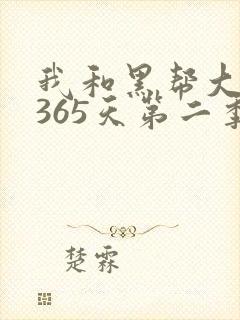 我和黑帮大
365天第二季
楚霖